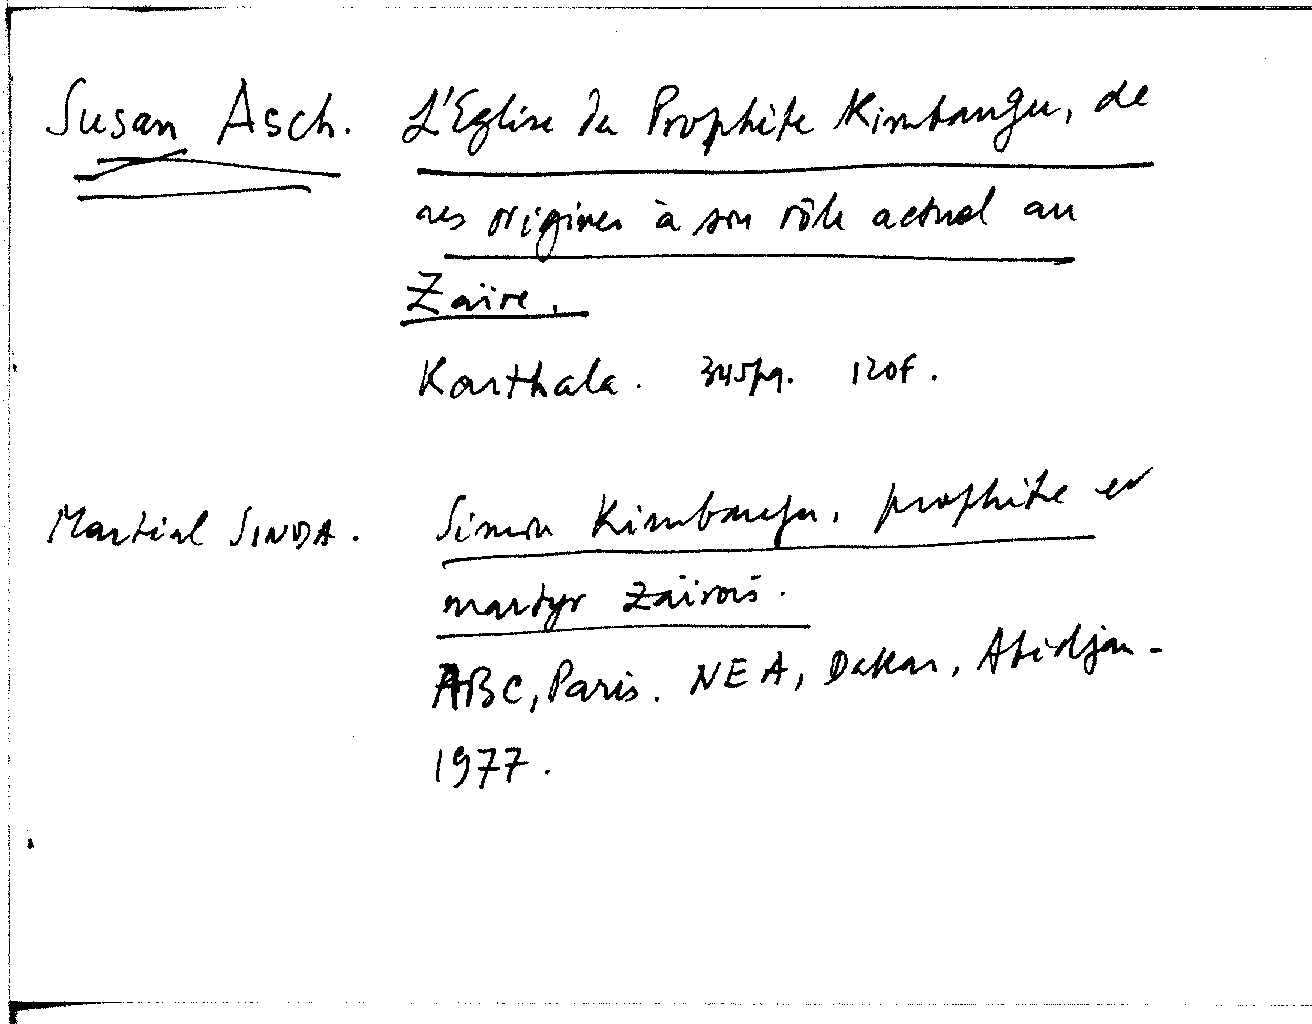 Susan Asch. L'Eglise du Prophète Kimbangu, de
ses origines à son rôle actuel au
Zaïre.
Karthala. 345pg. 120F.
Martial SINDA. Simon Kimbangu, prophète et
martyr zaïrois.
ABC, Paris. NEA, Dakar, Abidjan.
1977.